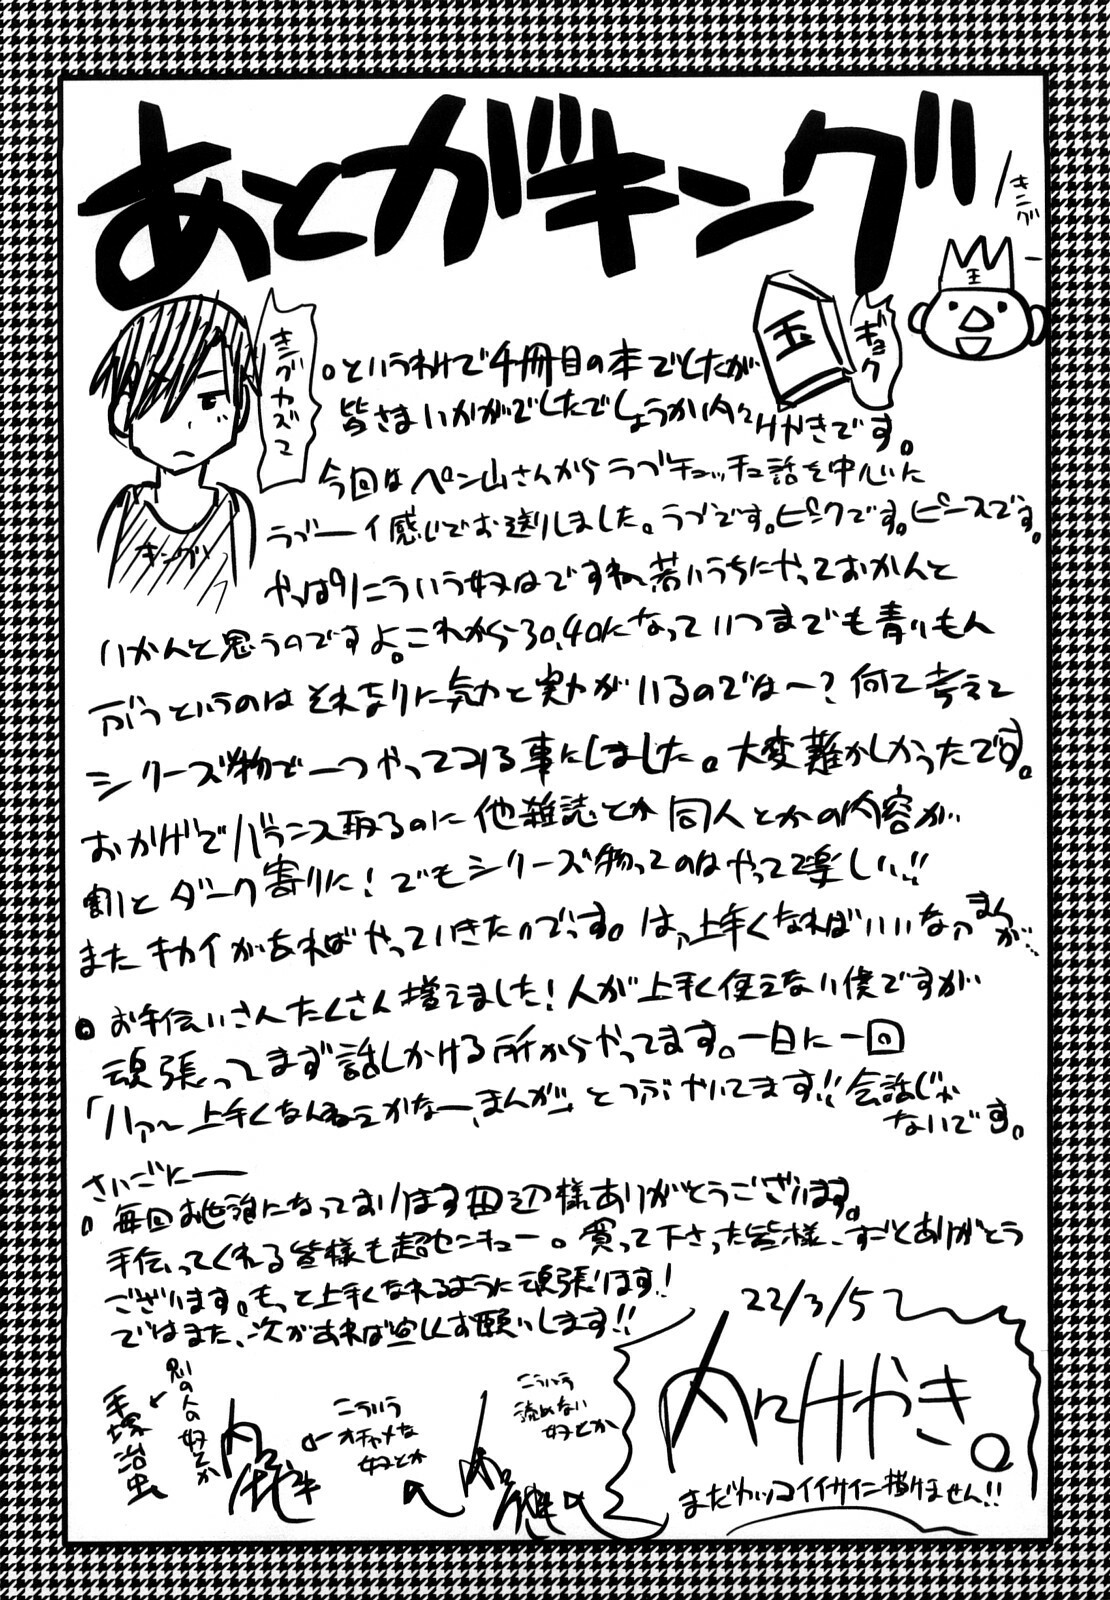 あとがキング
キング
王
玉
ギョク
キングカズって
キング
。というわけで4冊目の本でしたが
皆さまいかがでしたでしょうか内々けやきです。
今回はペン山さんからラブチュッチュ話を中心に
ラブーイ感じでお送りしました。ラブです。ピンクです。ピースです。
やっぱりこういう奴はですね、若いうちにやっておかんと
いかんと思うのですよ。これから30,40になっていつまでも青いもん
ぶうというのはそれなりに気力と実力がいるのではー?何て考えて
シリーズ物で一つやってみる事にしました。大変難かしかったです。
おかげでバランス取るのに他雑誌とか同人とかの内容が
割とダーク寄りに!でもシリーズ物ってのはやってて楽しい!!
またキカイがあればやっていきたいのです。はァ上手くなればいいなァまんが…
。お手伝いさんたくさん増えました!人が上手く使えない僕ですが
頑張ってまず話しかける所からやってます。一日に一回
「ハァ〜上手くなんねェかなー、まんが」とつぶやいてます!!会話じゃ
ないです。
さいごにー
。毎回お世話になっております田辺様ありがとうございます。
手伝ってくれる皆様も超センキュー。買って下さった皆様、すごとありがとう
ございます。もっと上手くなれるように頑張ります!
ではまた、次があれば宜しくお願いします!!
22/3/5
内々けやき。
まだカッコイイサイン描けません!!
こういう
読めない
奴とか
こういう
オチャメな
奴とか
別の人の奴とか
手塚治虫